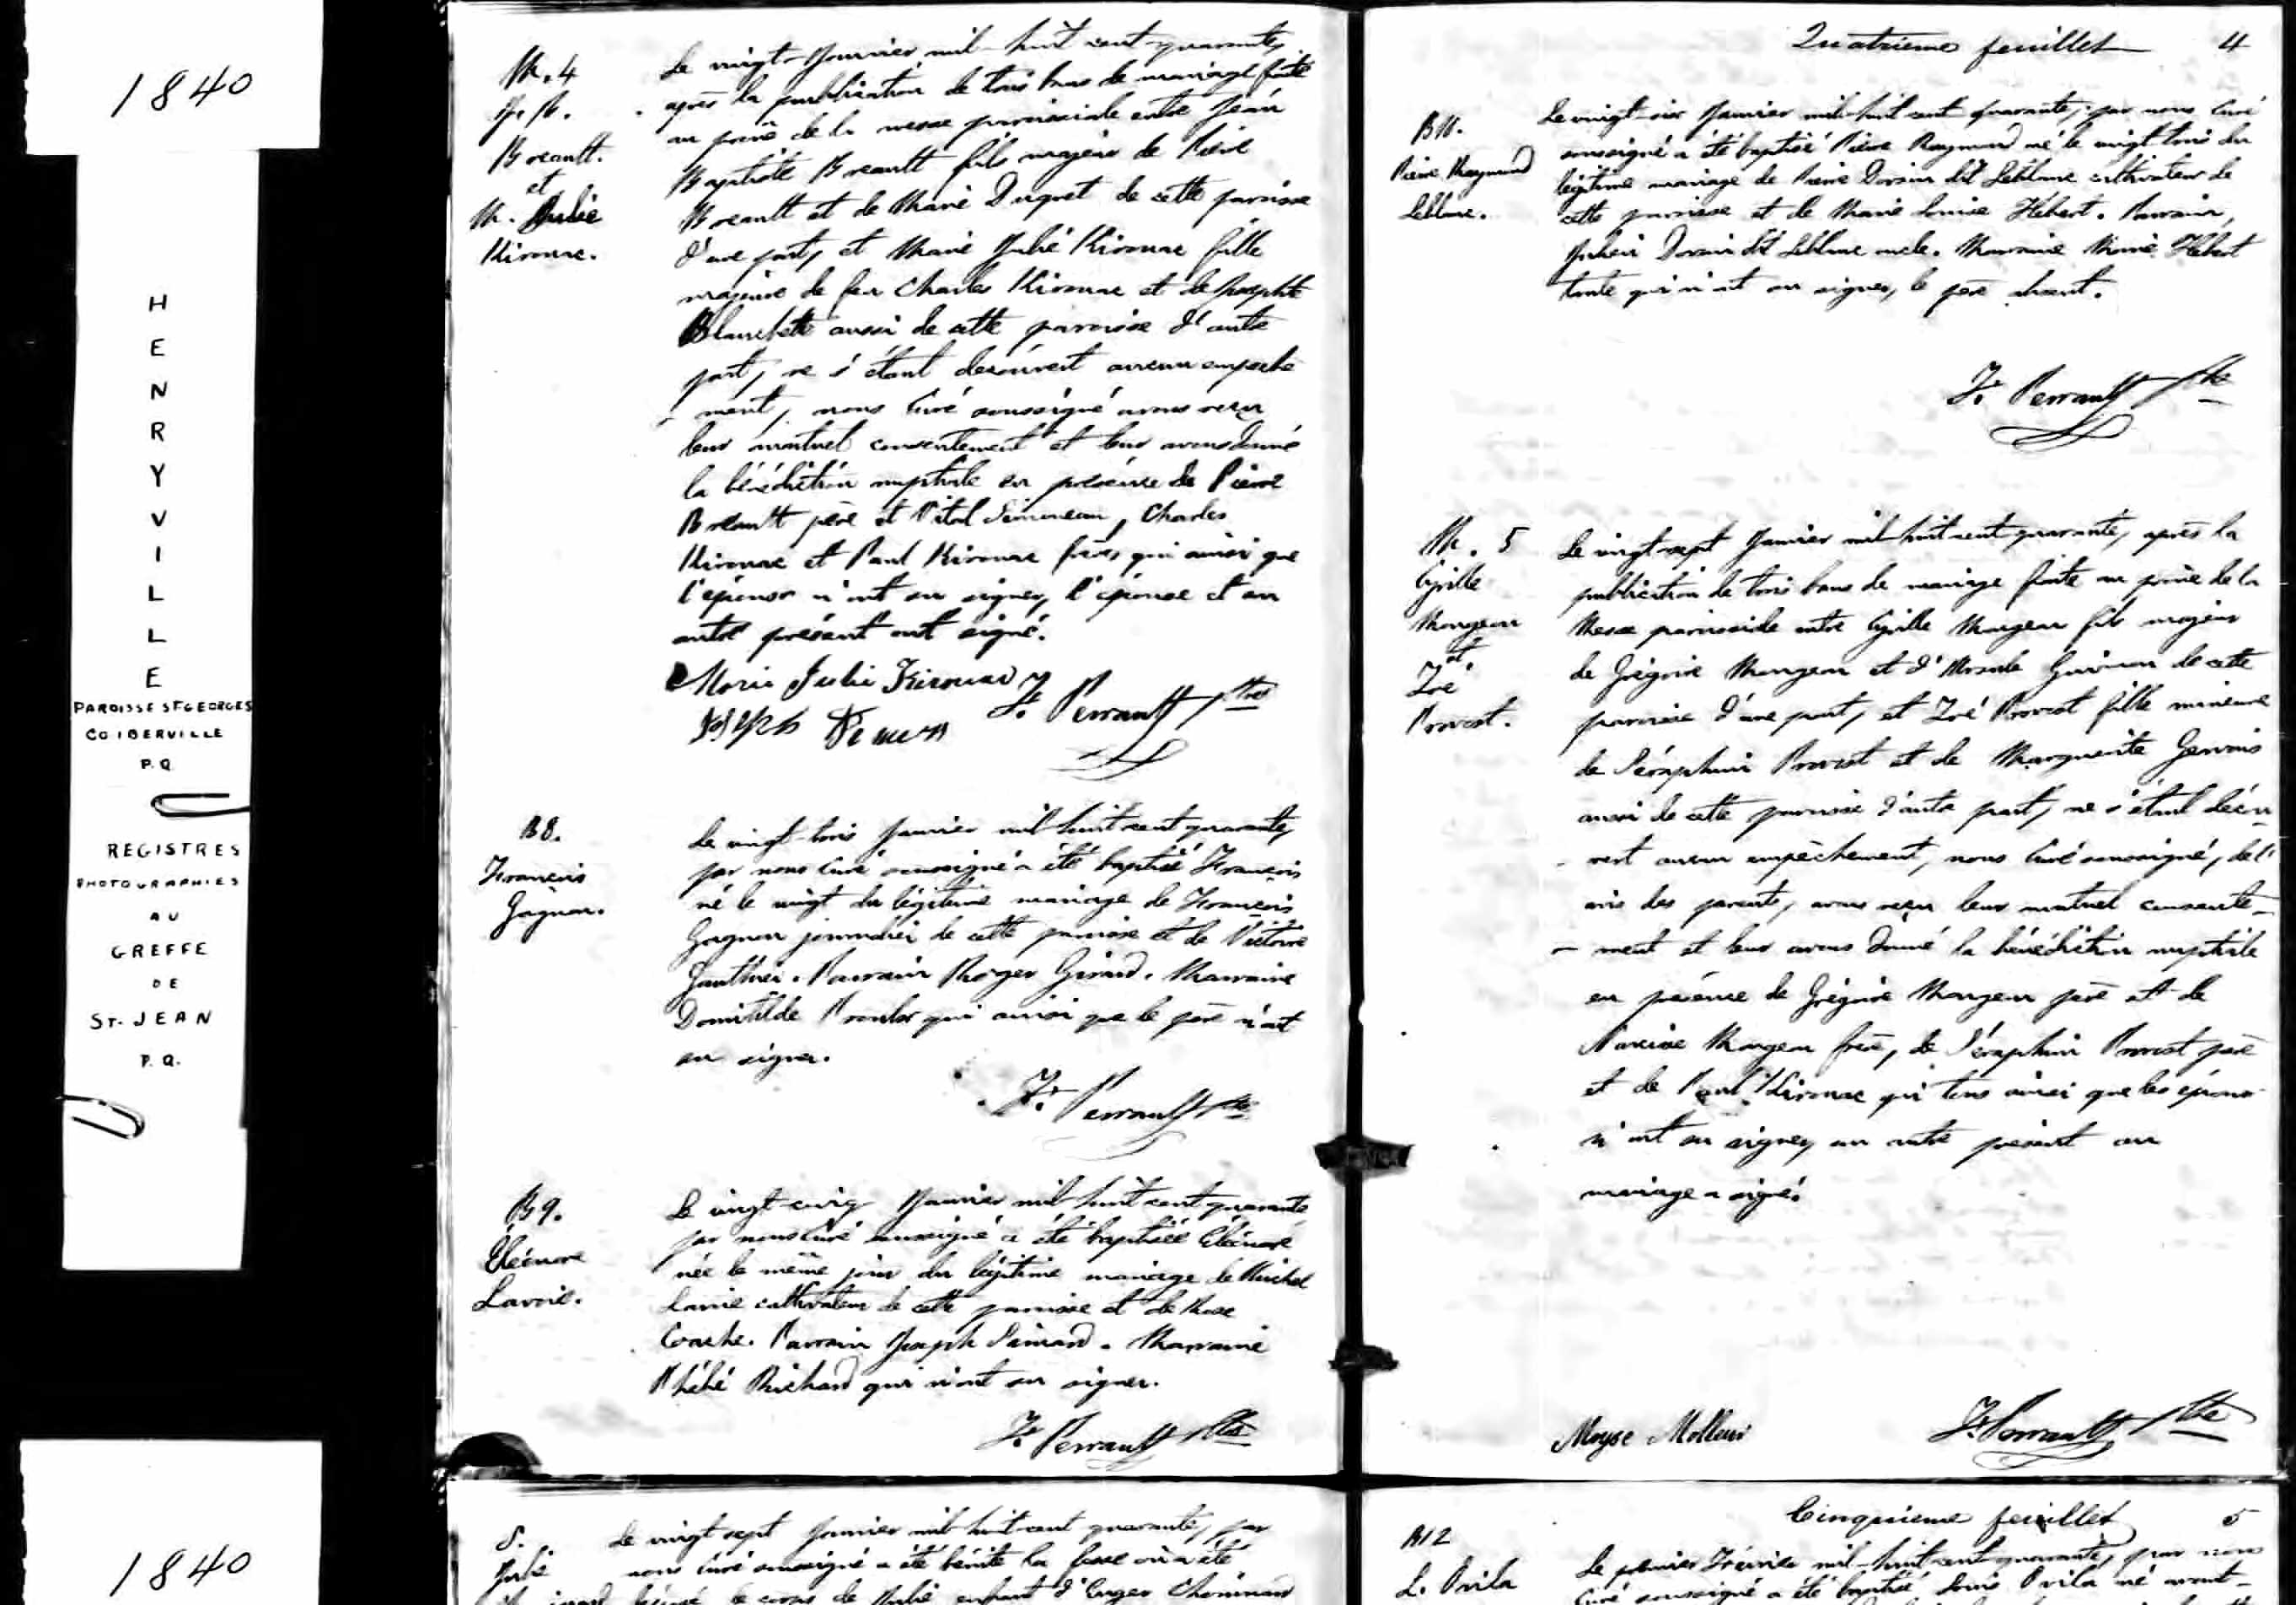 1840
HENRYVILLE
PAROISSE ST GEORGES
CO IBERVILLE
P.Q.
REGISTRES
PHOTOGRAPHIES
AU
GREFFE
DE
ST. JEAN
P.Q.
1840
M. 4
J. B.
Breault.
et
M. Julie
Kirouac.
Le vingt Janvier mil huit cent quarante,
après la publication de trois bans de mariage faite
au prône de la messe paroissiale entre Jean
Baptiste Breault fils majeur de Pierre
Breault et de Marie Duquet de cette paroisse
d'une part, et Marie Julie Kirouac fille
majeure de feu Charles Kirouac et de Josephte
Blanchette aussi de cette paroisse d'autre
part, ne s'étant découvert aucun empêche
- ment, nous Curé soussigné avons reçu
leur mutuel consentement et leur avons donné
la bénédiction nuptiale en présence de Pierre
Breault père et Vital, Charles
Kirouac et Paul Kirouac frères, qui ainsi que
l'époux n'ont su signer, l'épouse et un
autre présent ont signé.
Marie Julie Kirouac
Joseph Demers
F. Perrault Ptre
B 8.
François
Gagnon.
Le vingt-trois Janvier mil huit cent quarante,
par nous Curé soussigné a été baptisé François
né le vingt du légitime mariage de François
Gagnon journalier de cette paroisse et de Victoire
Gauthier. Parrain Roger Giraud. Marraine
Domitilde Proulx qui ainsi que le père n'ont
su signer.
F. Perrault Ptre
B 9.
Éléonore
Lavoie.
Le vingt-cinq Janvier mil huit cent quarante
par nous Curé soussigné a été baptisée Éléonore
née le même jour du légitime mariage de Michel
Lavoie cultivateur de cette paroisse et de Rose
Coache. Parrain Joseph Simard. Marraine
Phébé Richard qui n'ont su signer.
F. Perrault Ptre
S.
Julie
Le vingt sept Janvier mil huit cent quarante, par
nous Curé soussigné a été bénite la fosse où a été
le corps de Julie enfant d'
Quatrième feuillet 4
B 11.
Pierre Raymond
Leblanc.
Le vingt-six Janvier mil huit cent quarante, par nous Curé
soussigné a été baptisé Pierre Raymond né le vingt trois du
légitime mariage de Pierre Dorain dit Leblanc cultivateur de
cette paroisse et de Marie Louise Hébert. Parrain,
Julien Dorain dit Leblanc oncle. Marraine Marie Hébert
tante qui n'ont su signer, le père absent.
F. Perrault Ptre
M. 5
Cyrille
Mongeon
et
Zoé
Provost.
Le vingt-sept Janvier mil huit cent quarante, après la
publication de trois bans de mariage faite au prône de la
Messe paroissiale entre Cyrille Mongeon fils majeur
de Grégoire Mongeon et d'Ursule de cette
paroisse d'une part, et Zoé Provost fille mineure
de Séraphin Provost et de Marguerite Gervais
aussi de cette paroisse d'autre part, ne s'étant décou
- vert aucun empêchement, nous Curé soussigné, de l'
avis des parents, avons reçu leur mutuel consente-
- ment et leur avons donné la bénédiction nuptiale
en présence de Grégoire Mongeon père et de
Narcisse Mongeon frère, de Séraphin Provost père
et de Paul Kirouac qui tous ainsi que les époux
n'ont su signer, un autre présent au
mariage a signé.
Moyse Molleur
F. Perrault Ptre
Cinquième feuillet 5
B 12
L. Ovila
Le premier Février mil huit cent quarante, par nous
Curé soussigné a été baptisé Louis Ovila né avant-